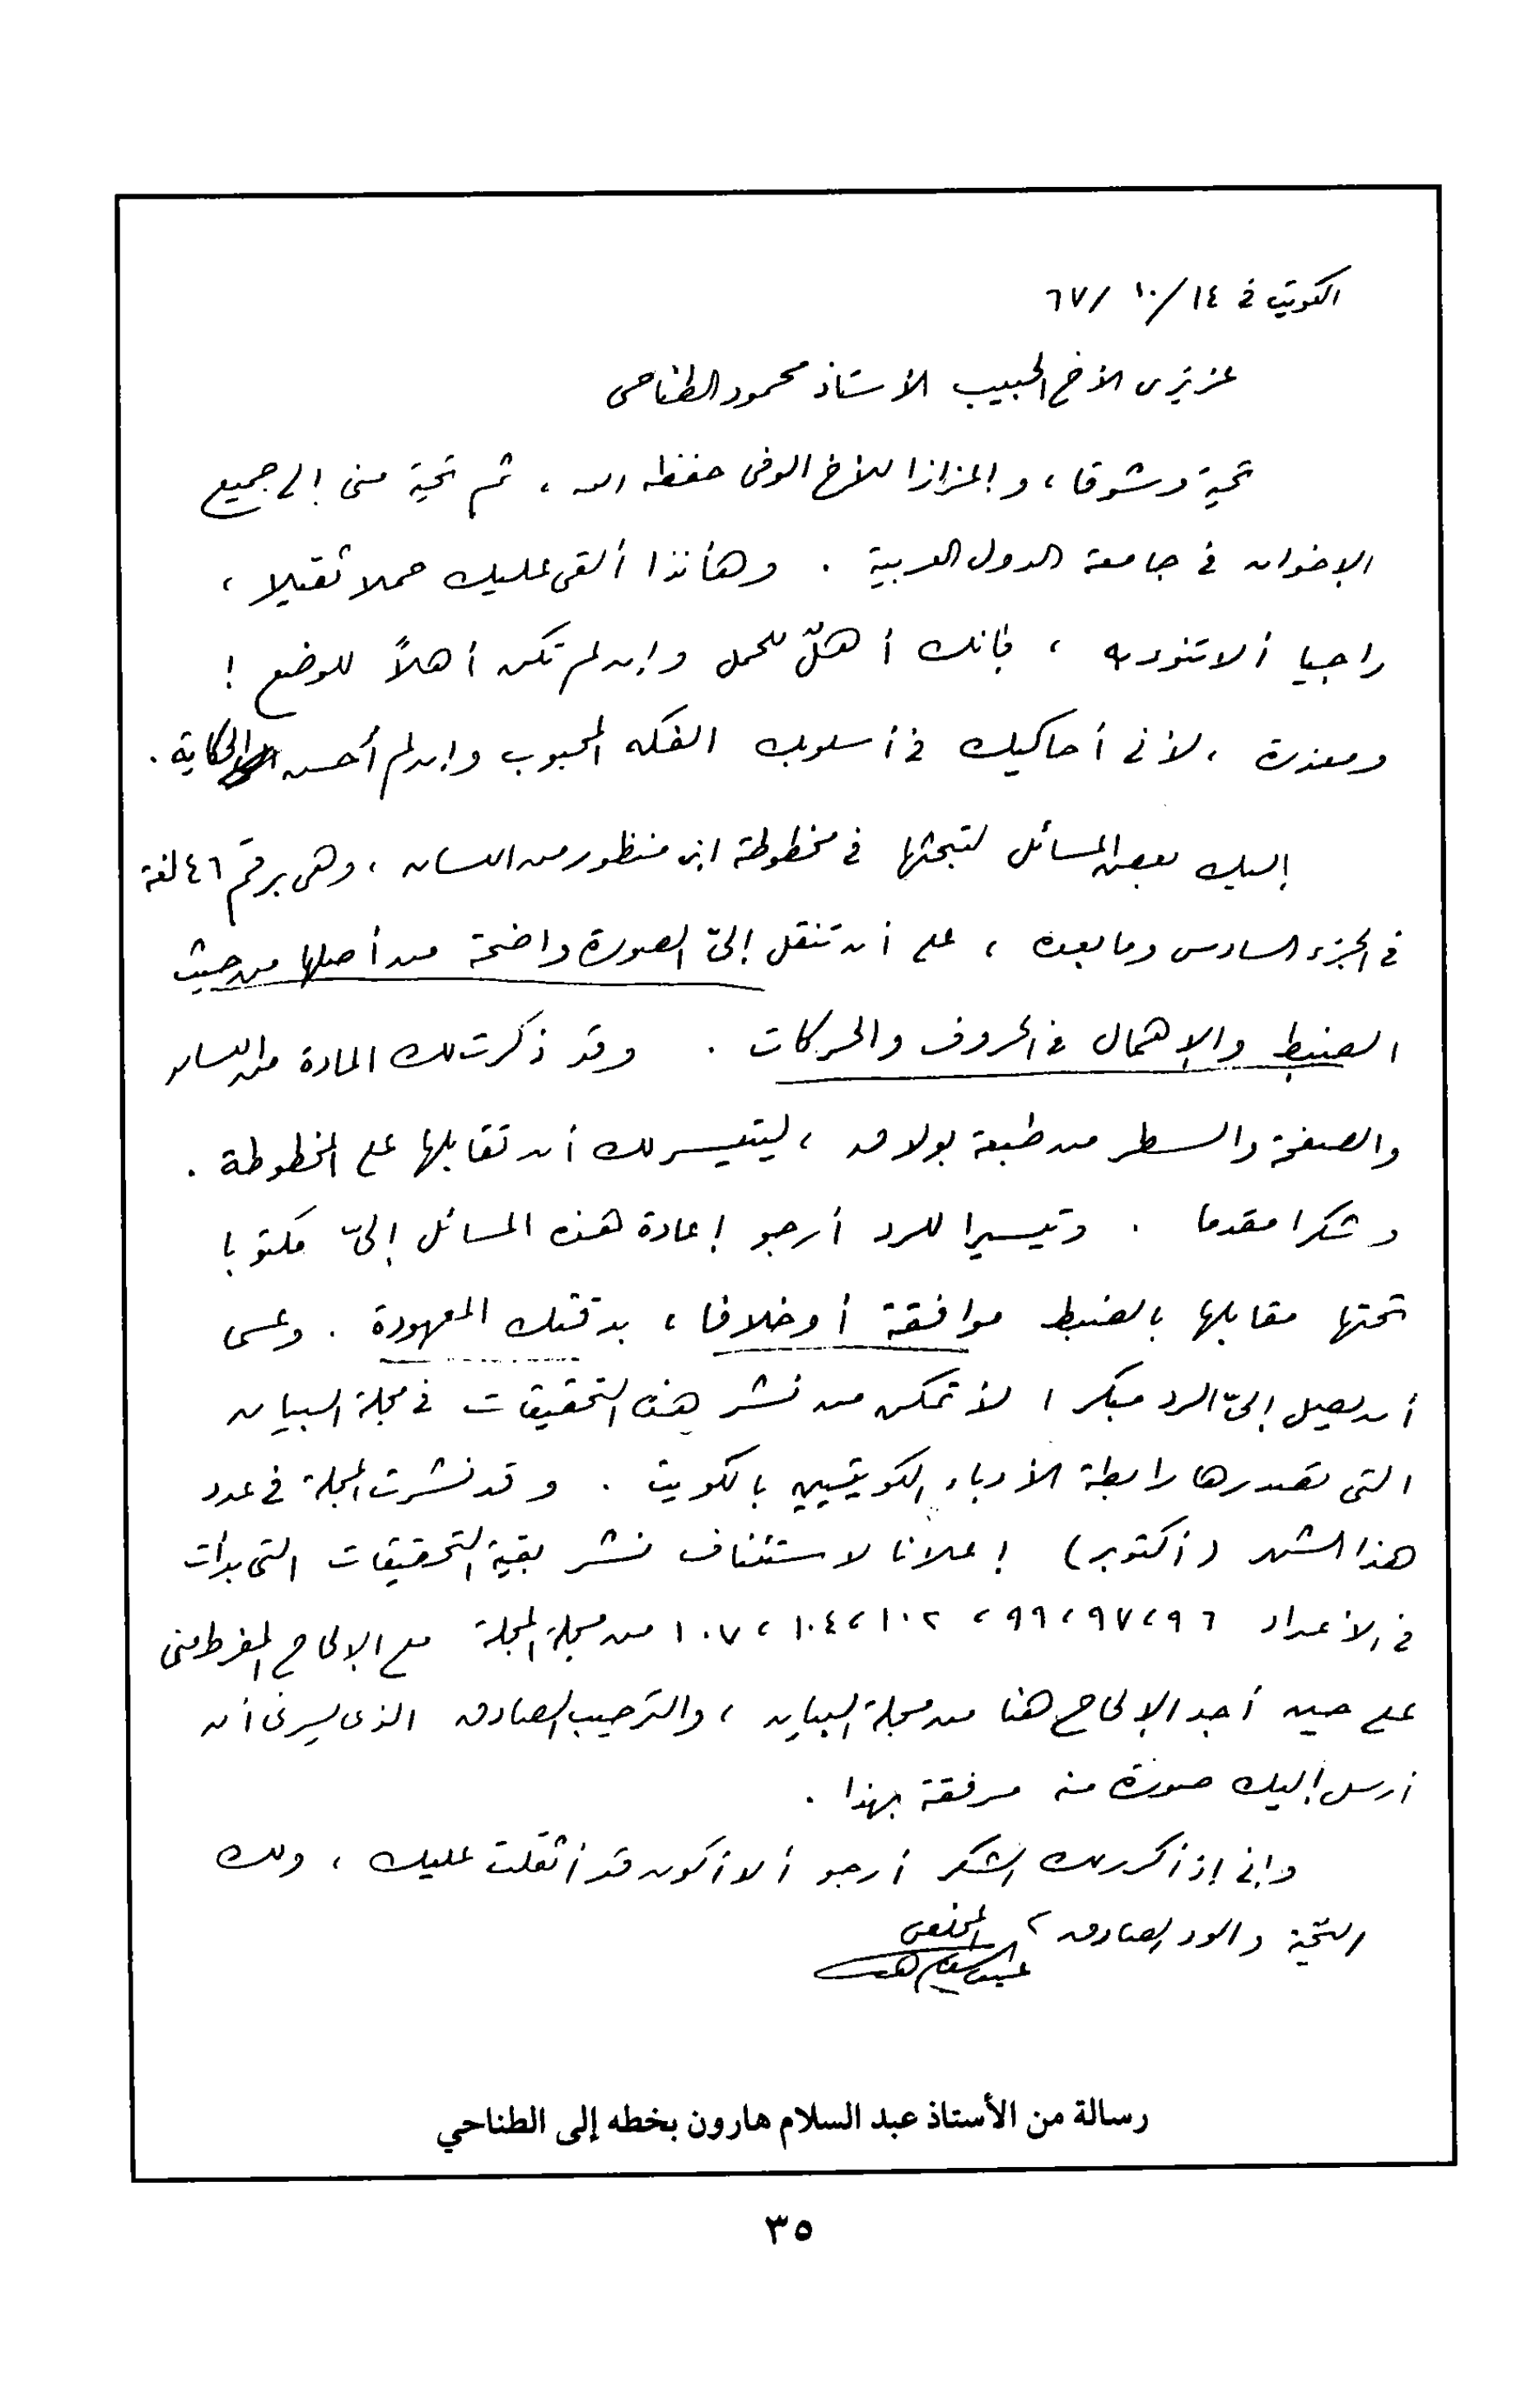 الكويت في ١٤/ ١٠/ ٦٧
عزيزى الأخ الحبيب الأستاذ محمود الطناحى
تحية وشوقا ، وإعزازا للأخ الوفى حفظه الله ، ثم تحية منى إلى جميع
الإخوان فى جامعة الدول العربية . وهأنذا ألقى عليك حملا ثقيلا ،
راجيا ألا تنوء به ، فإنك أهلٌ للحمل وإن لم تكن أهلاً للوضع !
ومعذرة ، لأنى أحاكيك فى أسلوبك الفكه المحبوب وإن لم أحسن الحكاية .
إليك بعض المسائل لتبحثها فى مخطوطة ابن منظور من اللسان ، وهى برقم ٤٦ لغة
فى الجزء السادس وما بعده ، على أن تنقل إلىّ الصورة واضحة من أصلها من حيث
الضبط والإهمال فى الحروف والحركات . وقد ذكرت لك المادة من اللسان
والصفحة والسطر من طبعة بولاق ، ليتيسر لك أن تقابلها على المخطوطة .
وشكرا مقدما . وتيسيرا للرد أرجو إعادة هذه المسائل إلىّ مكتوبا
تحتها مقابلها بالضبط موافقة أو خلافا ، بدقتك المعهودة . وعسى
أن يصل إلىّ الرد مبكرا لأتمكن من نشر هذه التحقيقات فى مجلة البيان
التى تصدرها رابطة الأدباء الكويتيين بالكويت . وقد نشرت المجلة فى عدد
هذا الشهر (أكتوبر) إعلانا لاستئناف نشر بقية التحقيقات التى بدأت
فى الأعداد ٩٦ ، ٩٧ ، ٩٩ ، ١٠٢ ، ١٠٤ ، ١٠٧ من مجلة المجلة مع الإلحاح المفرط منى
على حين أجد الإلحاح هنا من مجلة البيان ، والترحيب الصادق الذى يسرنى أن
أرسل إليك صورة منه مرفقة بهذا .
وإنى إذ أكرر لك الشكر أرجو ألا أكون قد أثقلت عليك ، ولك
التحية والود الصادق ، المخلص
عبد السلام هارون
رسالة من الأستاذ عبد السلام هارون بخطه إلى الطناحي
٣٥